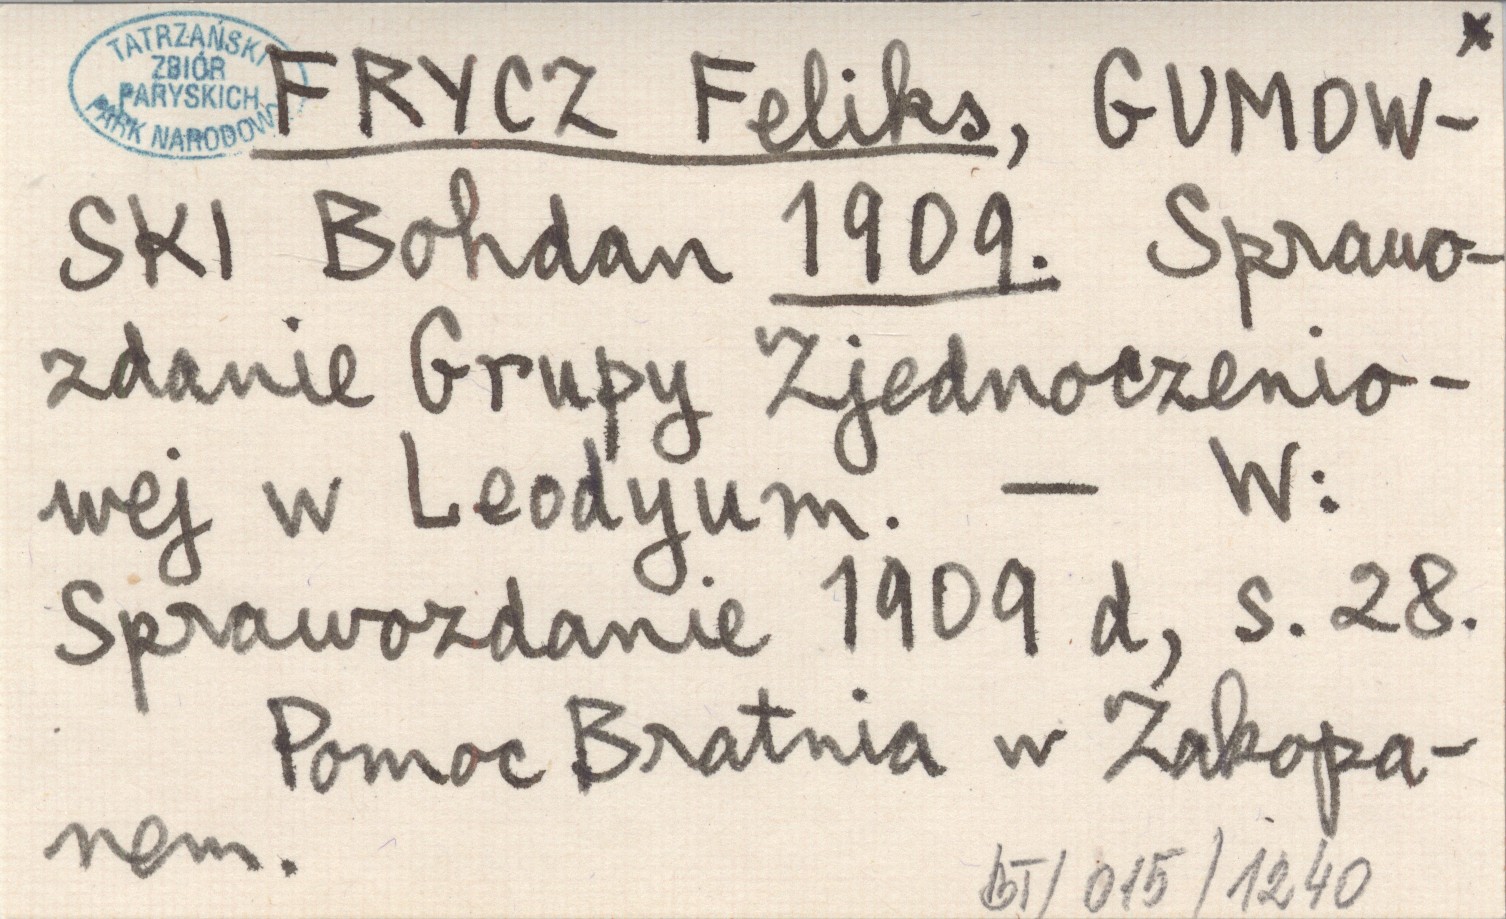 TATRZAŃSKI
ZBIÓR
PARYSKICH
PARK NARODOW
x
FRYCZ Feliks, GUMOW-
SKI Bohdan 1909. Sprawo-
zdanie Grupy Zjednoczenio-
wej w Leodyum. — W:
Sprawozdanie 1909 d, s. 28.
Pomoc Bratnia w Zakopa-
nem.
bT/015/1240